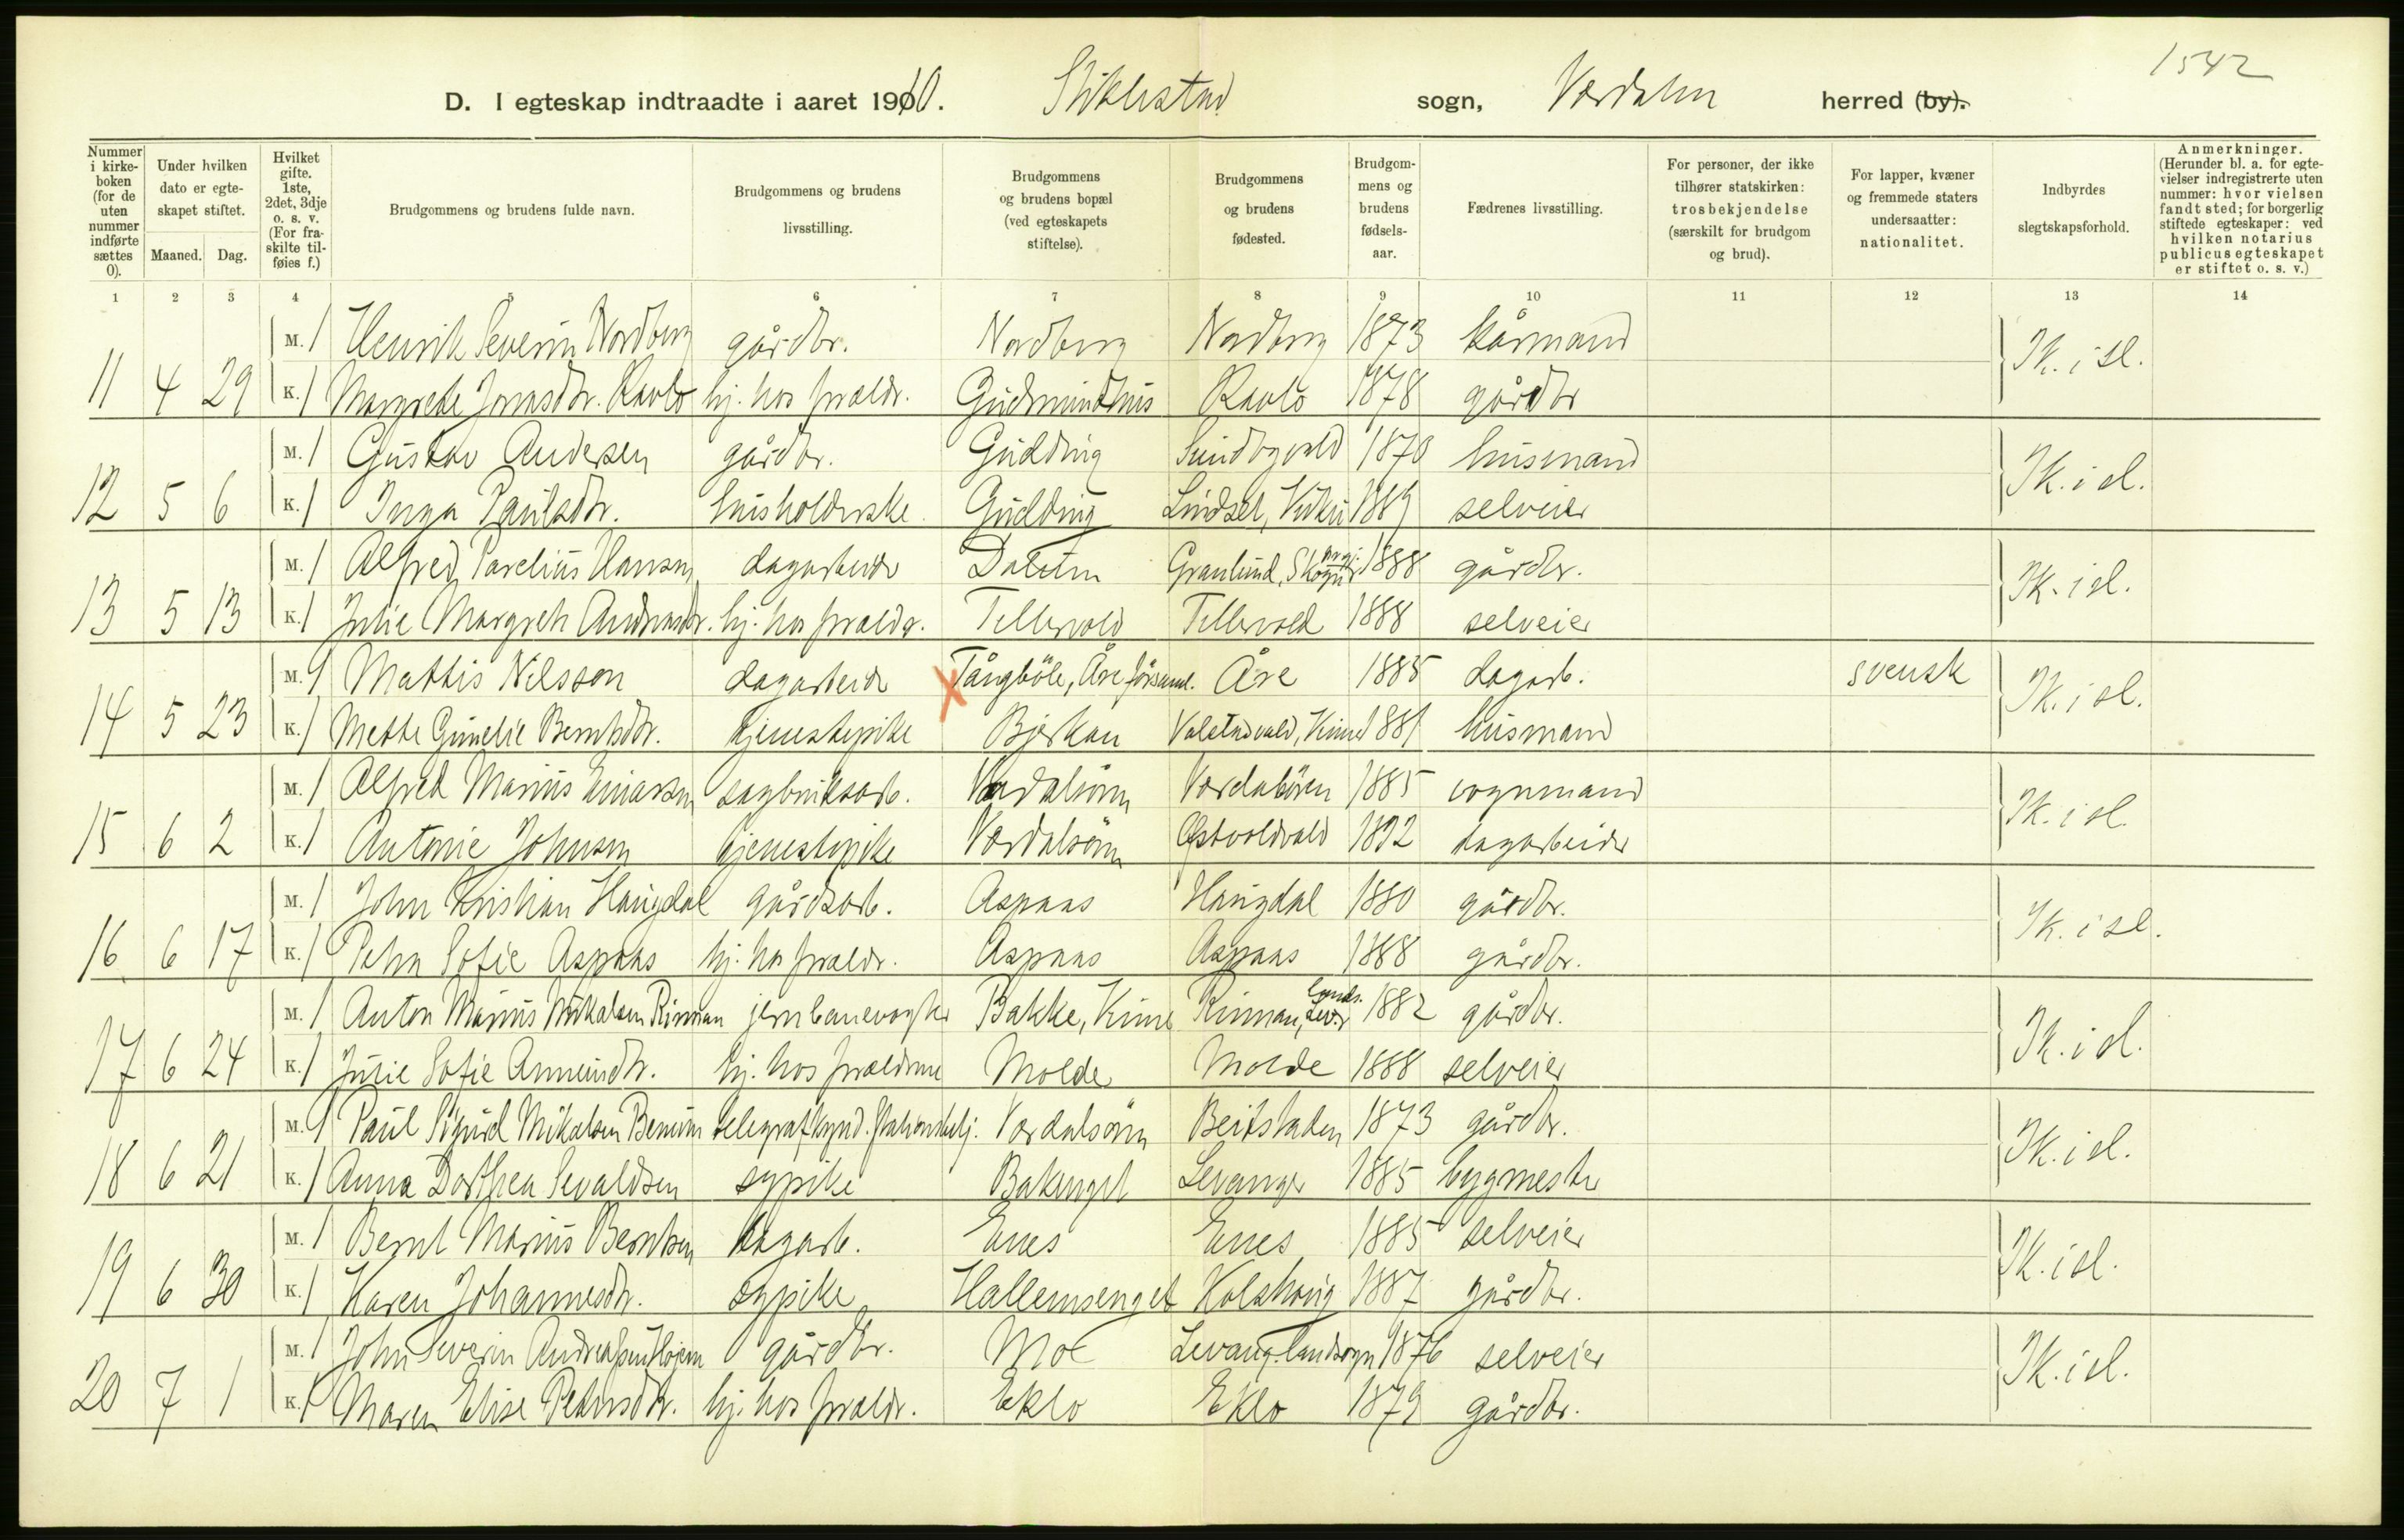 1542
D. I egteskap indtraadte i aaret 1910. Stiklestad sogn, Værdalen herred (by).
Nummer i kirke-boken (for de uten nummer indførte sættes 0).
Under hvilken dato er egte-skapet stiftet.
Maaned. Dag.
Hvilket gifte. 1ste, 2det, 3dje o. s. v. (For fra-skilte til-føies f.)
Brudgommens og brudens fulde navn.
Brudgommens og brudens livsstilling.
Brudgommens og brudens bopæl (ved egteskapets stiftelse).
Brudgommens og brudens fødested.
Brudgom-mens og brudens fødsels-aar.
Fædrenes livsstilling.
For personer, der ikke tilhører statskirken: trosbekjendelse (særskilt for brudgom og brud).
For lapper, kvæner og fremmede staters undersaatter: nationalitet.
Indbyrdes slegtskapsforhold.
Anmerkninger. (Herunder bl. a. for egte-vielser indregistrerte uten nummer: hvor vielsen fandt sted; for borgerlig stiftede egteskaper: ved hvilken notarius publicus egteskapet er stiftet o. s. v.)
1 2 3 4 5 6 7 8 9 10 11 12 13 14
M. 1 Henrik Severin Nordberg gårdbr. Nordberg Nordberg 1873 kårmand Ik. i sl.
11 4 29 K. 1 Margrete Jonasdtr. Ravlo hj. hos forældr. Gudmundhus Ravlo 1878 gårdbr
M. 1 Gustav Andersen gårdbr. Gudding 1870 husmand Ik. i sl.
12 5 6 K. 1 Inga Paulsdtr. husholderske Gudding Lindset, Vuku 1889 selveier
M. 1 Alfred Parelius Hansen dagarbeider Dalem Granlund, Skogn 1888 gårdbr. Ik. i sl.
13 5 13 K. 1 Julie Margrete Andreasdtr. hj. hos forældr. Tellervold Tellervold 1888 selveier
M. 1 Mattis Nilsson dagarbeider Tångböle, Åre församl. Åre 1885 dagarb. svensk Ik. i sl.
14 5 23 K. 1 Mette Gunelie Berntsdtr. tjenestepike Bjørkan Valstadvald, Kinne 1881 husmand
M. 1 Alfred Marius Einarsen sagbruksarb. Værdalsøren Værdalsøren 1885 vognmand Ik. i sl.
15 6 2 K. 1 Antonie Johnsen tjenestepike Værdalsøren Østvoldvald 1892 dagarbeider
M. 1 John Kristian Haugdal gårdsarb. Aspaas Haugdal 1880 gårdbr. Ik. i sl.
16 6 17 K. 1 Petra Sofie Aspaas hj. hos forældr. Aspaas Aspaas 1888 gårdbr.
M. 1 Anton Marius Mikalsen Rinnan jernbanevogter Bakke, Kinne Rinnan, Lev. lands. 1882 gårdbr. Ik. i sl.
17 6 24 K. 1 Julie Sofie Annundtr. hj. hos forældrene Molde Molde 1888 selveier
M. 1 Paul Sigurd Mikalsen telegrafkynd. stationsbetj. Værdalsøren Beitstaden 1873 gårdbr. Ik. i sl.
18 6 21 K. 1 Anna Dorthea Sevaldsen sypike Bakenget Levanger 1885 bygmester
M. 1 Bernt Marius Berntsen dagarb. Enes Enes 1885 selveier Ik. i sl.
19 6 30 K. 1 Karen Johannesdtr. sypike Hallemsenget Kolshaug 1887 gårdbr.
M. 1 John Severin Andreassen Hojem gårdbr. Moe Levang. landsogn 1876 selveier Ik. i sl.
20 7 1 K. 1 Maren Elise Petersdtr. hj. hos forældr. Eklo Eklo 1879 gårdbr.